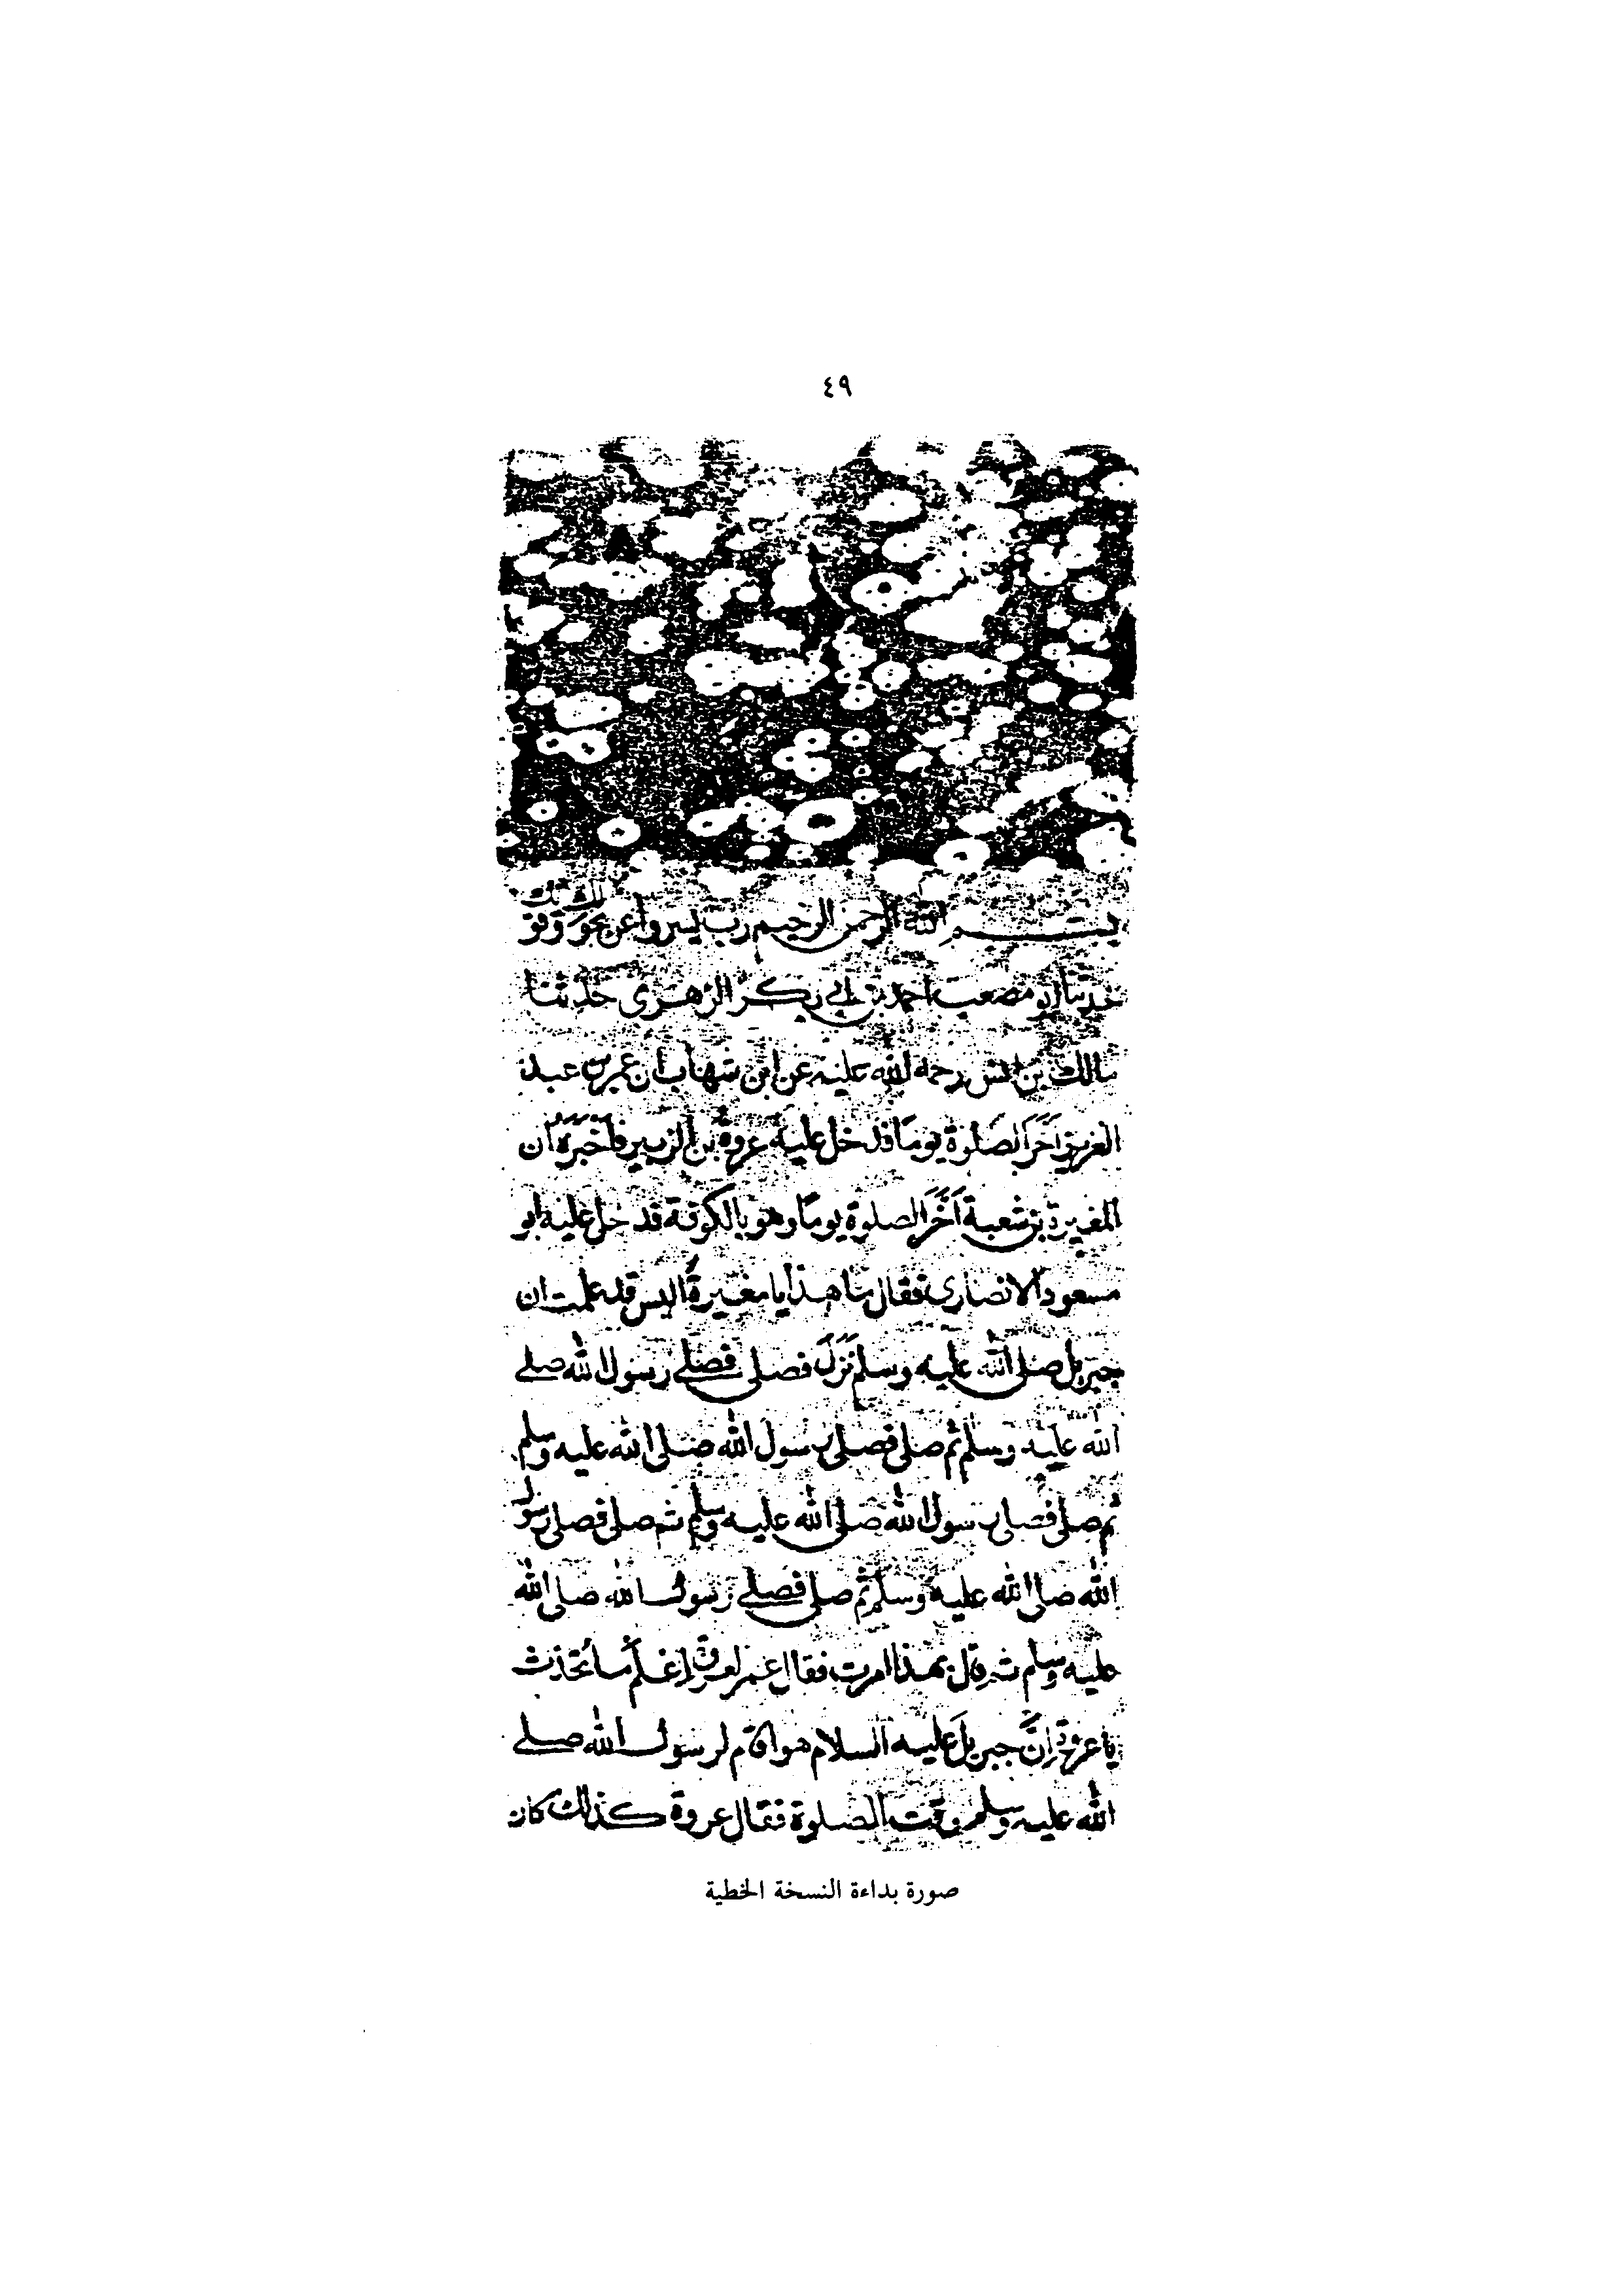 ٤٩
بسم الله الرحمن الرحيم رب يسر واعن
حدثنا ابو مصعب احمد بن ابي بكر الزهري حدثنا
مالك بن انس رحمة الله عليه عن ابن شهاب ان عمر بن عبد
العزيز اَخَّرَ الصلوة يوما فدخل عليه عروة بن الزبير فاخبره ان
المغيرة بن شعبة اَخَّرَ الصلوة يوما وهو بالكوفة فدخل عليه ابو
مسعود الانصاري فقال ما هذا يا مغيرة اليس قد علمت ان
جبريل صلى الله عليه وسلم نَزَلَ فصلى فصلى رسول الله صلى
الله عليه وسلم ثم صلى فصلى رسول الله صلى الله عليه وسلم
ثم صلى فصلى رسول الله صلى الله عليه وسلم ثم صلى فصلى رسول
الله صلى الله عليه وسلم ثم صلى فصلى رسول الله صلى الله
عليه وسلم ثم قال بهذا امرت فقال عمر لعروة اعلم ما تحدث
يا عروة اِنَّ جبريل عليه السلام هو اقام لرسول الله صلى
الله عليه وسلم وقت الصلوة فقال عروة كذلك كان
صورة بداءة النسخة الخطية